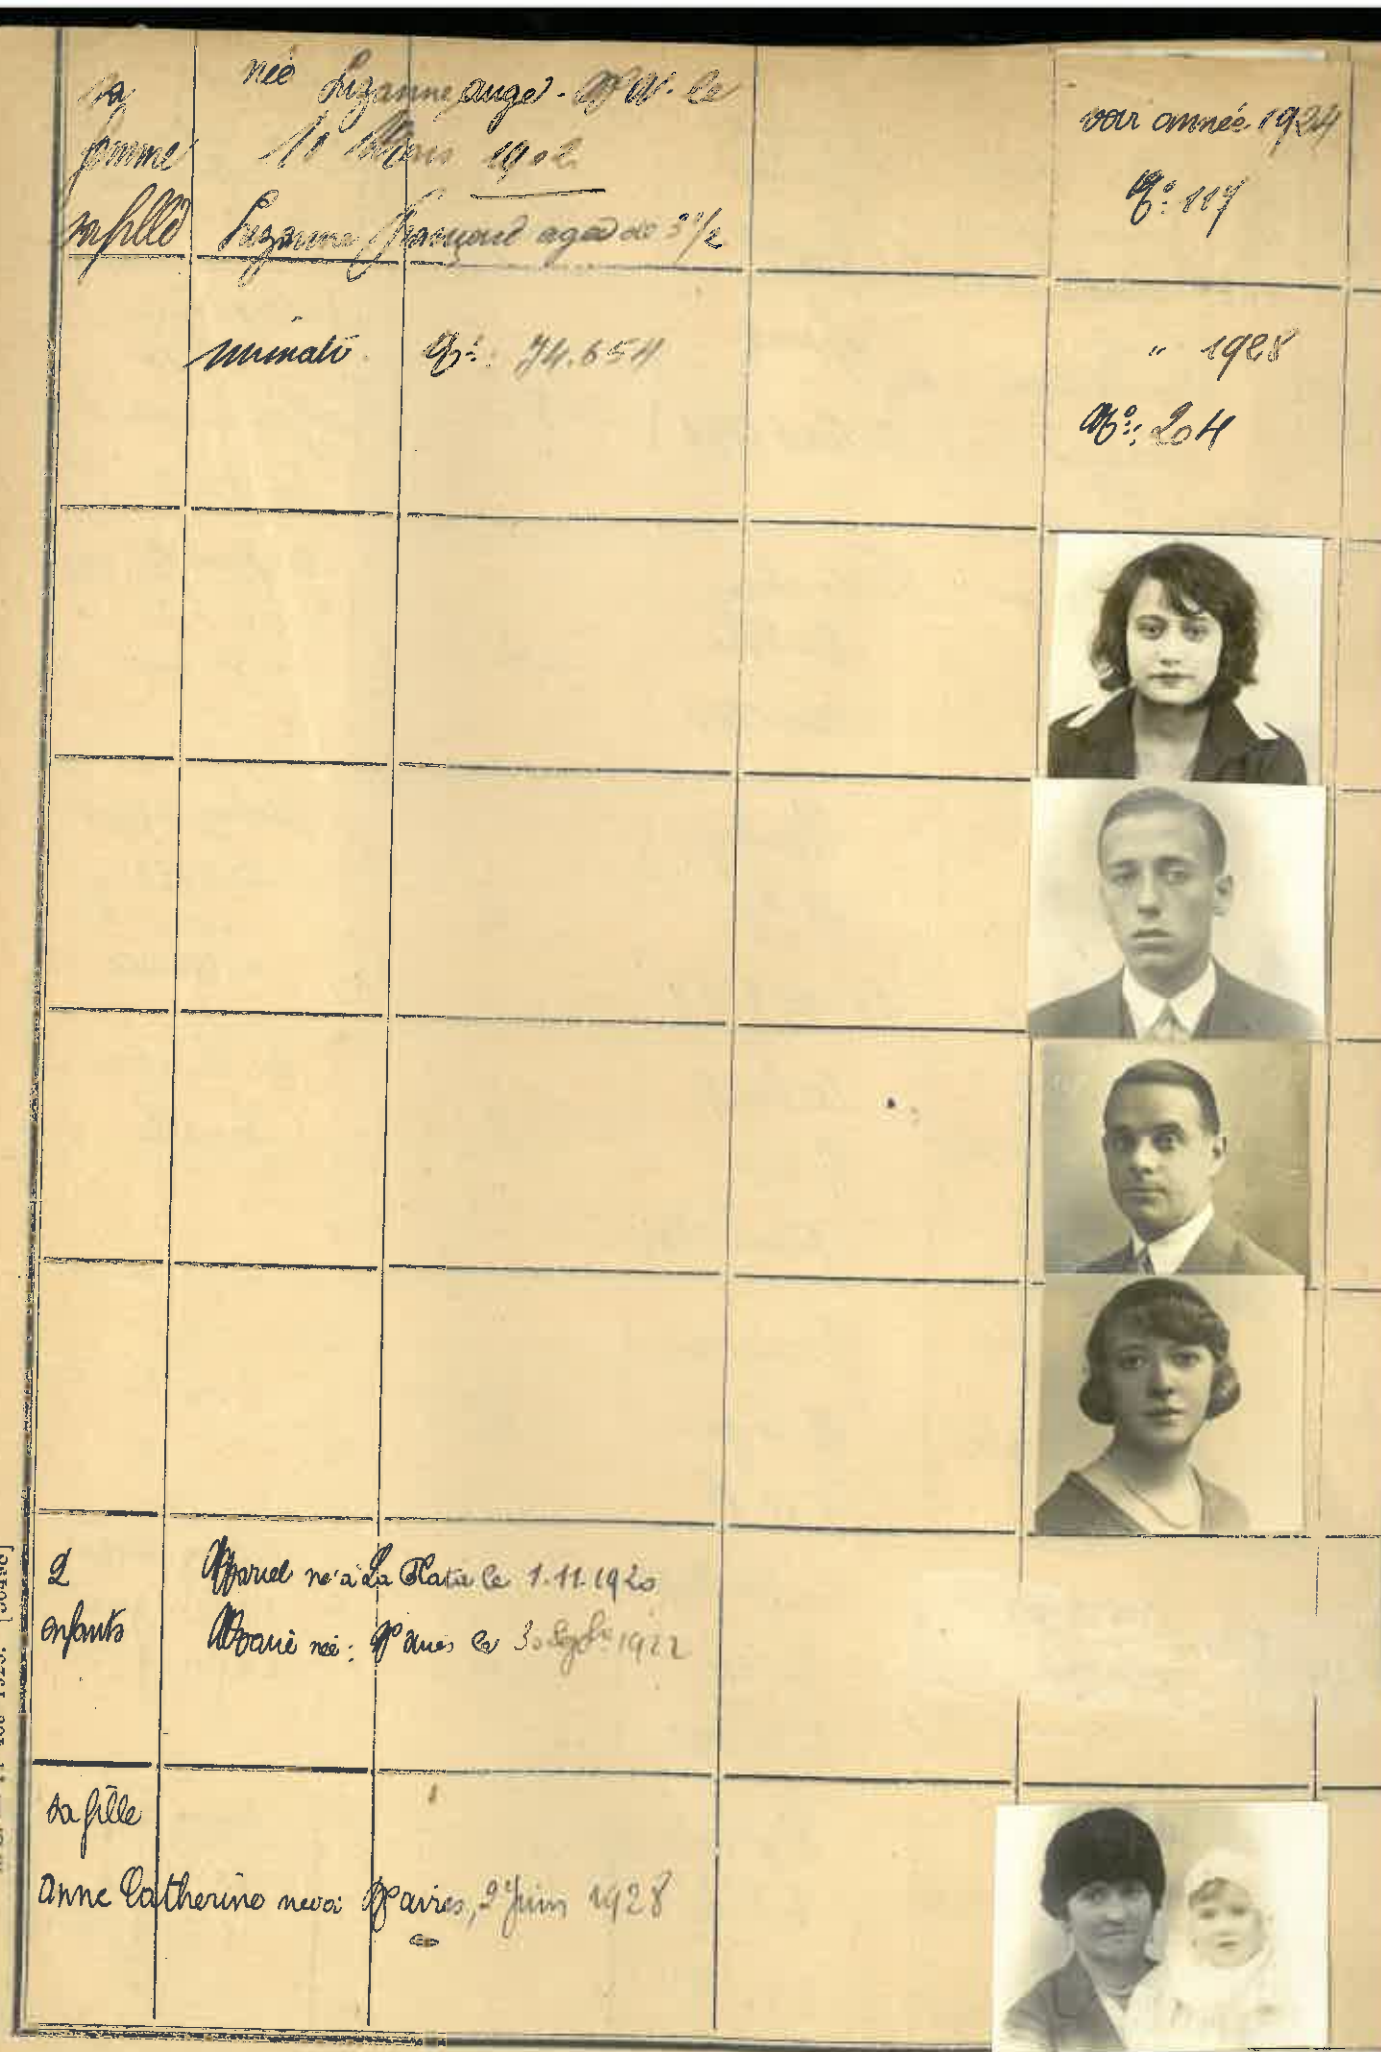 sa
femme
née Suzanne ange. le
10 Mars 1902
voir année 1924
N°: 117
sa fille
Suzanne Françoise agée de 3 1/2
N°: 74.654
" 1928
N°: 204
2
enfants
Marcel né à La Plata le 1.11.1920
Marie née: Paris le 30 1922
sa fille
Anne Catherine née à Paris, 2 Juin 1928